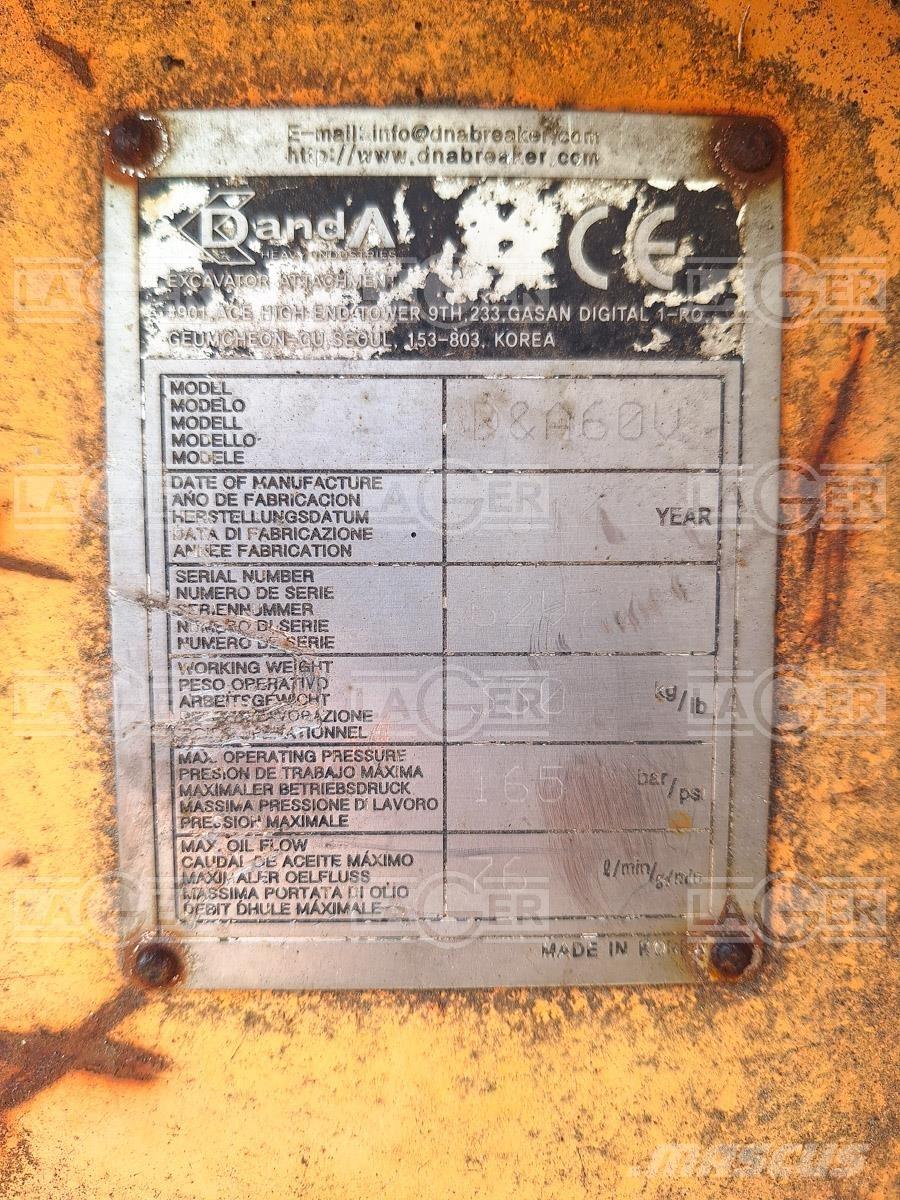 E-mail: info@dnabreaker.com
http://www.dnabreaker.com
DandA
HEAVY INDUSTRIES
CE
EXCAVATOR ATTACHMENT
#901, ACE HIGH-END TOWER 9TH, 233, GASAN DIGITAL 1-RO
GEUMCHEON-GU, SEOUL, 153-803, KOREA
MODEL
MODELO
MODELL
MODELLO
MODELE
D&A60V
DATE OF MANUFACTURE
AÑO DE FABRICACION
HERSTELLUNGSDATUM
DATA DI FABRICAZIONE
ANNEE FABRICATION
YEAR
SERIAL NUMBER
NUMERO DE SERIE
SERIENNUMMER
NUMERO DI SERIE
NUMERO DE SERIE
WORKING WEIGHT
PESO OPERATIVO
ARBEITSGEWICHT
kg/lb
MAX. OPERATING PRESSURE
PRESION DE TRABAJO MÁXIMA
MAXIMALER BETRIEBSDRUCK
MASSIMA PRESSIONE DI LAVORO
PRESSION MAXIMALE
165 bar/psi
MAX. OIL FLOW
CAUDAL DE ACEITE MÁXIMO
MAXIMALER OELFLUSS
MASSIMA PORTATA DI OLIO
DEBIT DHULE MÁXIMALE
l/min/g/min
MADE IN KOREA
LAGER
MASCUS